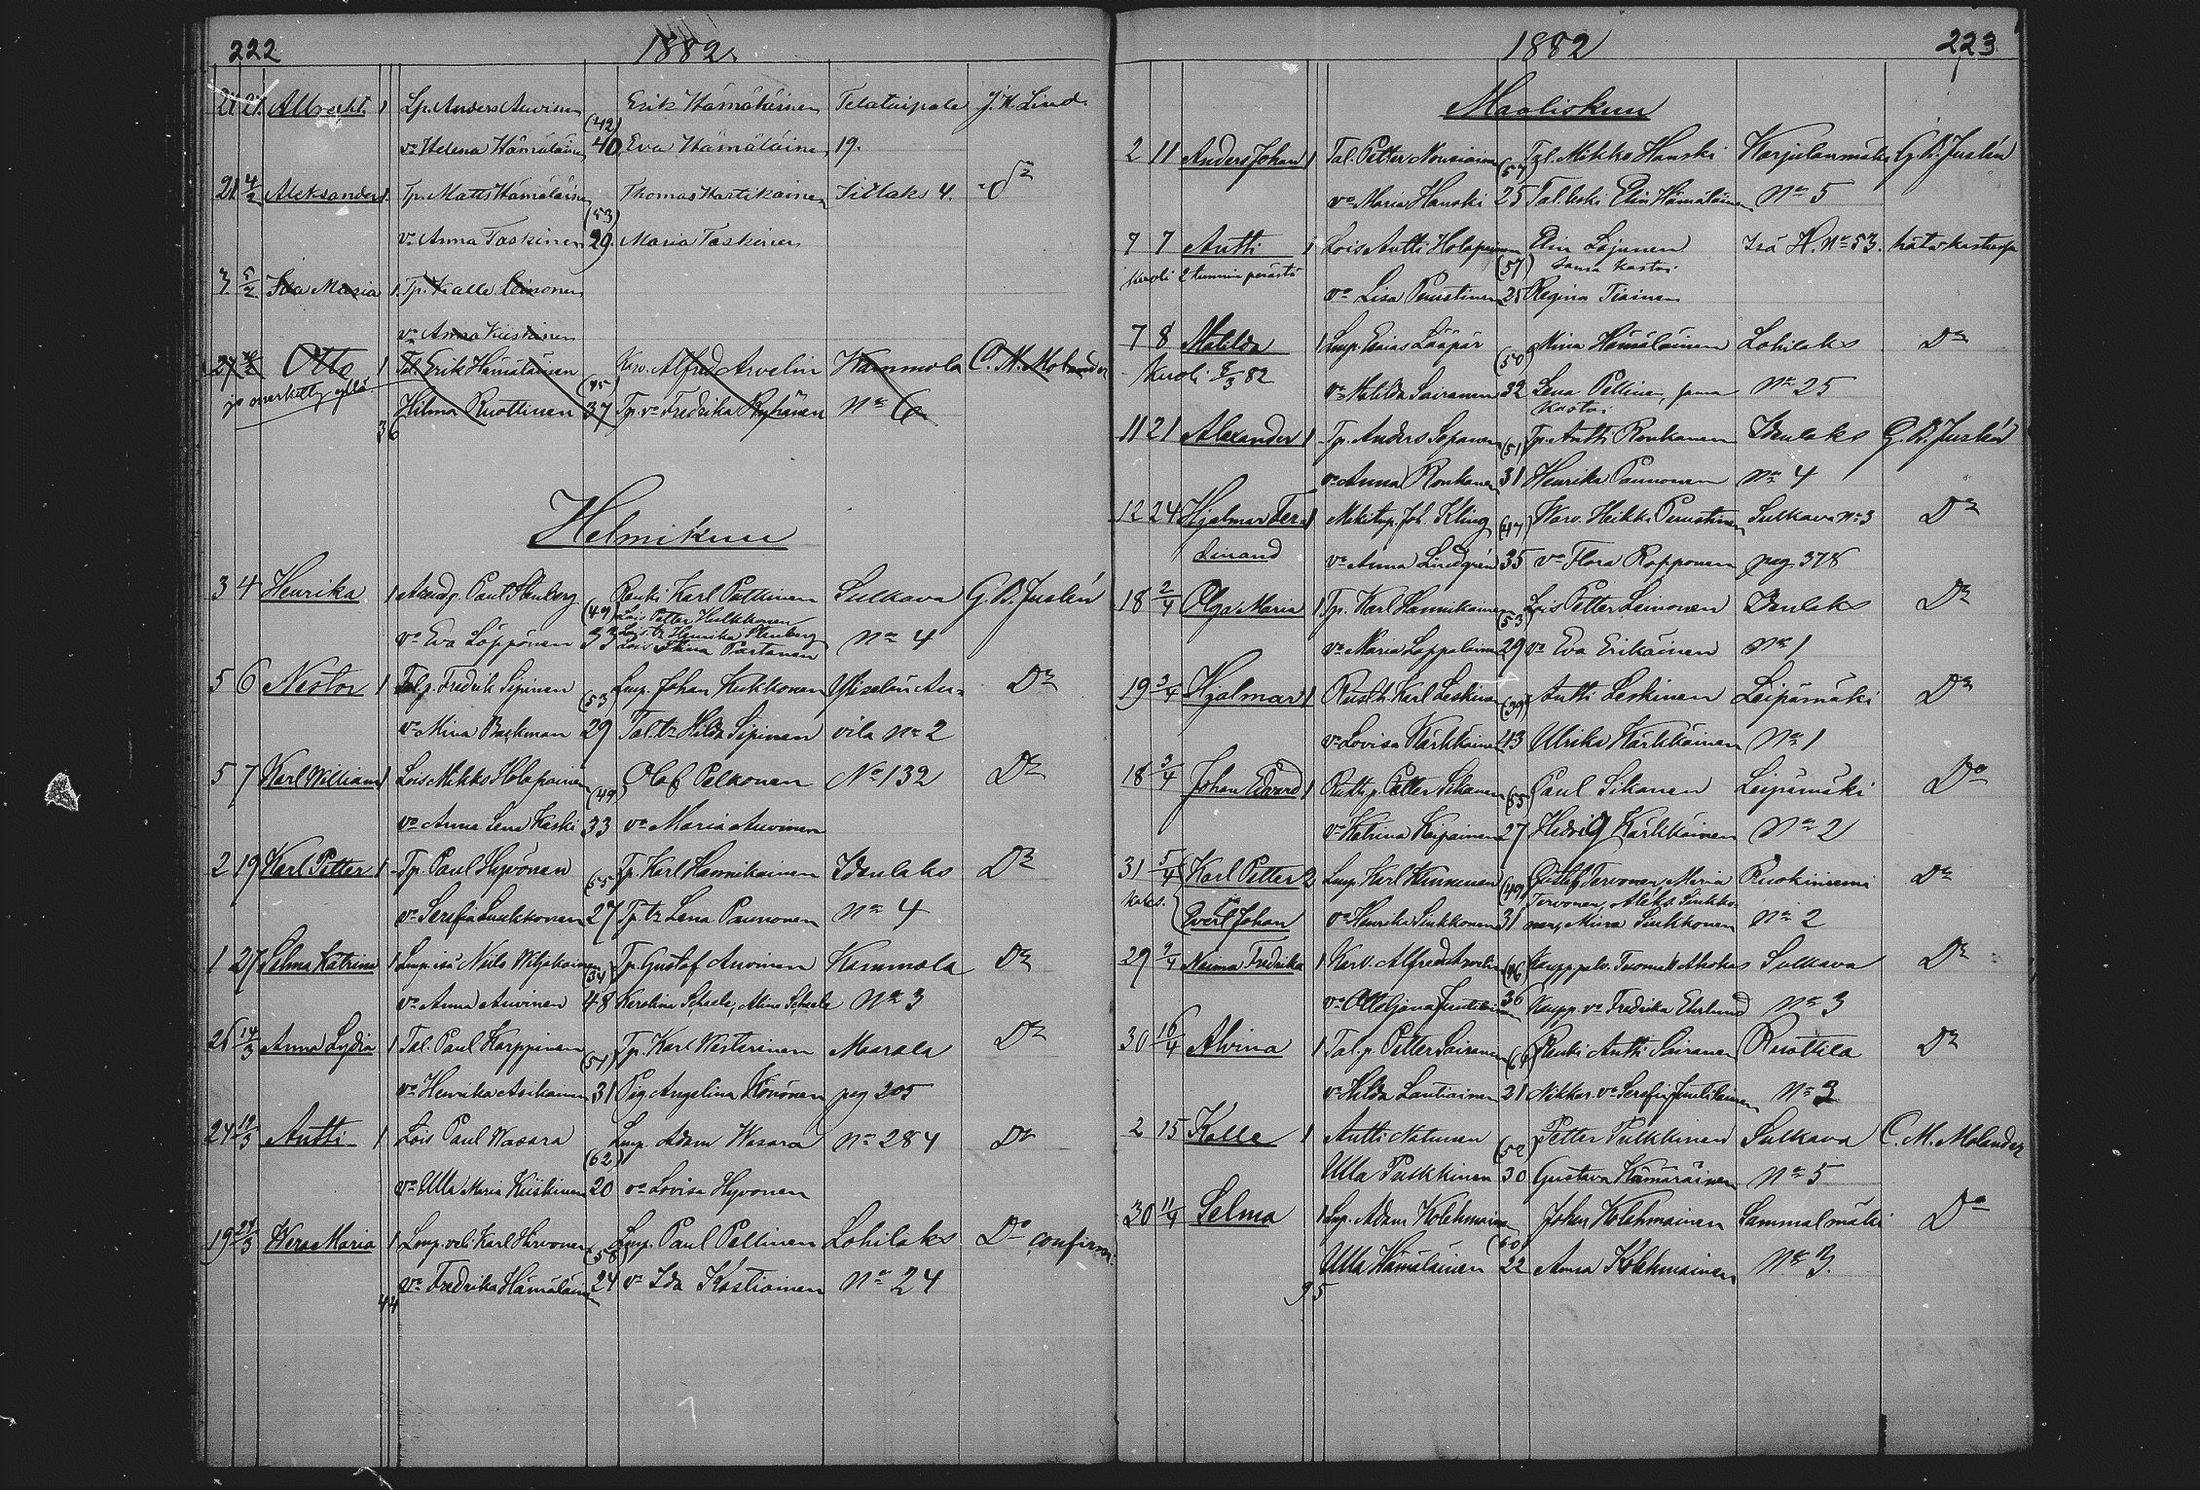 222 1882.
21 27 Albrecht 1 Lp. Anders Auvinen (42) Erik Hämäläinen Telataipale J. H. Lind.
va Helena Hämäläinen 40 Eva Hämäläinen 19.
21 4/2 Aleksander 1 Tp. Matts Hämäläinen (53) Thomas Hartikainen Iitlaks 4. Do
va Anna Taskinen 29. Maria Taskinen
3 5/2 Ida Maria 1 Tp. Kalle Leinonen
va Anna Kiiskinen
27 Otto 1 Tal. Erik Hämäläinen (45) Karv. Alfred Arvelin Kammola C. M. Molander
jo merkitty yllä Hilma Ruottinen 37 Tp. va Fredrika Ryhänen No 6
36
Helmikuu
3 4 Henrika 1 Paul Stenberg (49) Renki Karl Pulkkinen Sulkava G. B. Juslén
Lois Petter Hulkkonen
va Eva Löppönen 33 Lois. tr Henrika Stenberg No 4
Lois Stina Partanen
5 6 Nestor 1 Tal.p. Fredrik Sipinen (53) Lmp. Johan Kukkonen
va Mina Backman 29 Tal. tr Hilda Sipinen vila No 2 Do
5 7 Karl William 1 Lois Mikko Holopainen (49) Olof Pelkonen No 132 Do
va Anna Lena Kaski 33 va Maria Auvinen
2 19 Karl Petter 1 Tp. Paul Hyvönen (55) Tp. Karl Hannikainen Idenlaks Do
va Serafia Luukkonen 27 Tp. tr Lena Paunonen No 4
1 27 Selma Katrina 1 Lmp. isä Nils Viljakainen (34) Tp. Gustaf Auvinen Kammola Do
va Anna Auvinen 48 Karolina Scheele, Alina Scheele No 3
26 14/3 Anna Lydia 1 Tal. Paul Karppinen (51) Tp. Karl Westerinen Maarala Do
va Henrika Asikainen 31 Pig. Angelina Könönen pag 205
24 19/3 Antti 1 Lois Paul Wasara (62) Lmp. Adam Wasara No 284 Do
va Ulla Maria Kiiskinen 20 va Lovisa Hyvonen
19 29/3 Wera Maria 1 Lmp. veli Karl Hirvonen (58) Lmp. Paul Pellinen Lohilaks Do confirm.
va Fredrika Hämäläinen 24 va Ida Kostiainen No 24
44
1882 223
Maaliskuu
2 11 Anders Johan 1 Tal. Petter Nousiainen (57) Tal. Mikko Hanski Karjulanmäki G. B. Juslén
va Maria Hanski 25 Tal. leski Elin Hämäläinen No 5
7 7 Antti 1 Lois Antti Holopainen (57) Elin Löjönen Irä H. No 53. hätäkasteesa
kuoli 2 tunnin perästä sama kastoi
va Lisa Purustinen 25 Regina Tiainen
7 8 Matilda 1 Lmp. Esaias Lääpär (50) Mina Hämäläinen Lohilaks Do
Kuoli 8/3 82
va Matilda Sairanen 32 Lena Pellinen, sama No 25
kastoi
11 21 Alexander 1 Tp. Anders Sopanen (51) Tp. Antti Ronkanen Idenlaks G. B. Juslén
va Anna Ronkanen 31 Henrika Paunonen No 4
12 24 Hjalmar Fer- 1 Mäkitup. Joh. Kling (47) Karv. Heikki Purustinen Sulkava No 3 Do
dinand va Anna Lindgrén 35 va Flora Ropponen pag. 378
18 2/4 Olga Maria 1 Tp. Karl Hannikainen (53) Lois Petter Leinonen Idenlaks Do
va Maria Lappalainen 29 va Eva Erikäinen No 1
19 3/4 Hjalmar 1 Rusth. Karl Leskinen (39) Antti Leskinen Leipämäki Do
va Lovisa Kärkkäinen 43 Ulrika Kärkkäinen No 1
18 3/4 Johan Edvard 1 Rusth.p. Petter Sikanen (55) Paul Sikanen Leipämäki Do
va Katrina Keipainen 27 Hedvig Kärkkäinen No 2
31 5/4 Karl Petter 2 Lmp. Karl Kinnunen (49) Gustaf Tervonen, Maria Ruokoniemi Do
kaks. ja Tervonen, Aleks. Sinkko-
Evert Johan va Henrika Sinkkonen 31 nen, Miina Sinkkonen No 2
29 9/4 Naima Fredrika 1 Karv. Alfred Arvelin (46) Kauppapalv. Tuomas Ahokas Sulkava Do
va Otteljana Juutilainen 36 Kaupp. va Fredrika Ehrlund No 3
30 16/4 Alvina 1 Tal.p. Petter Sairanen (61) Renki Antti Sairanen Ruottila Do
va Hilda Lautiainen 21 Nikkar. va Serafia Juutilainen No 3
2 15 Kalle 1 Antti Natunen (52) Petter Pulkkinen Sulkava C. M. Molander
Ulla Pulkkinen 30 Gustava Kämäräinen No 5
30 11/4 Selma 1 Lmp. Adam Kolehmainen (60) Johan Kolehmainen Sammalmäki Do
Ulla Hämäläinen 22 Anna Kolehmainen No 3.
95